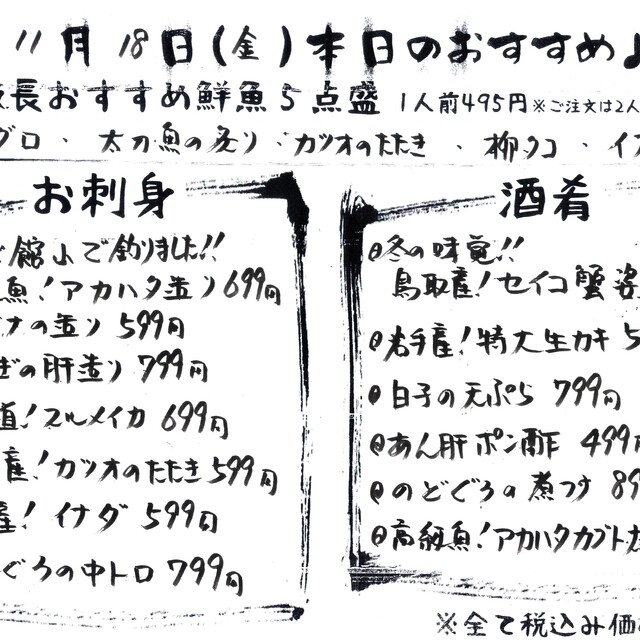 11月18日(金)本日のおすすめ♪
長おすすめ鮮魚5点盛 1人前495円 ※ご注文は2人
グロ・太刀魚の炙り・カツオのたたき・柳タコ・イ
お刺身
館山で釣りました!!
魚!アカハタ造り 699円
ナの造り 599円
ぎの肝造り 799円
直!スルメイカ 699円
産!カツオのたたき 599円
産!イナダ 599円
ぐろの中トロ 799円
酒肴
冬の味覚!!
鳥取産!セイコ蟹姿
岩手産!特大生カキ 5
白子の天ぷら 799円
あん肝ポン酢 499円
のどぐろの煮つけ 89
高級魚!アカハタカブト
※全て税込み価